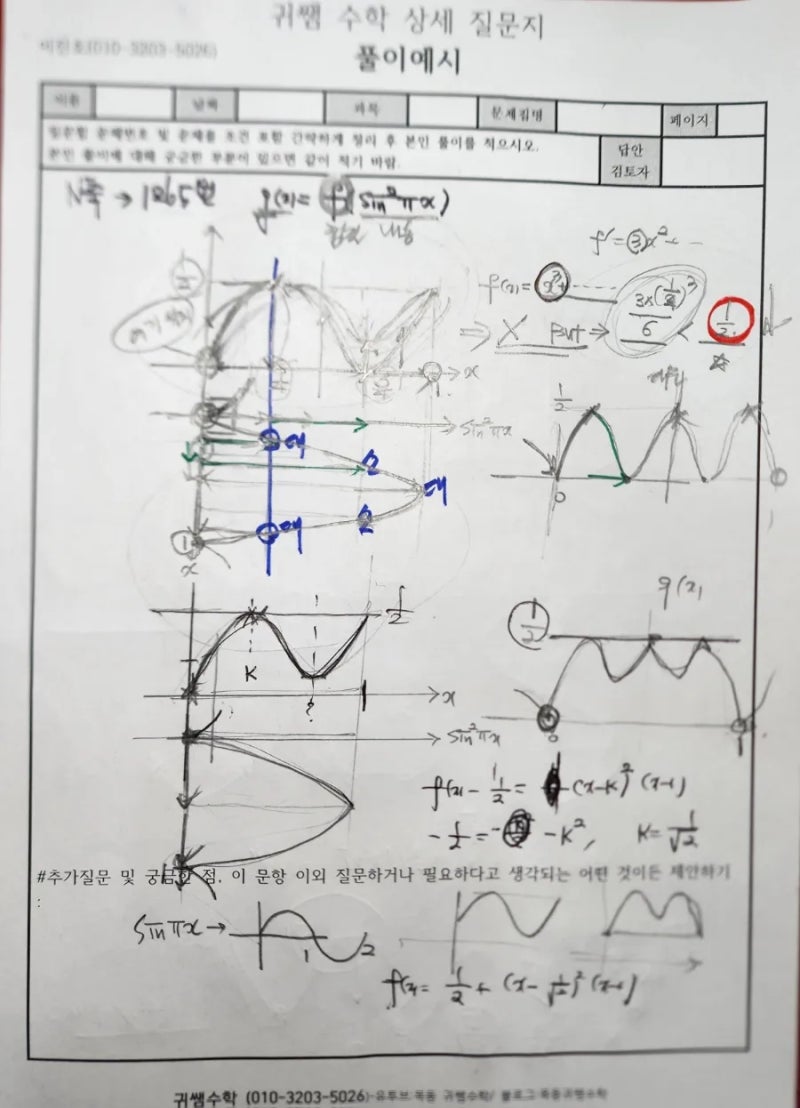 귀쌤 수학 상세 질문지
풀이예시
이름 날짜 과목 문제집명 페이지
질문할 문제번호 및 문제를 조건 포함 간략하게 정리 후 본인 풀이를 적으시오.
본인 풀이에 대해 궁금한 부분이 있으면 같이 적기 바람.
답안
검토자
N축 → 1265번 g(x) = f(sin²πx)
f' = 3x² + ...
f(x) = x³+
⇒ X But ⇒ < 1/2
x
sin²πx
1/2
0
대
대
2
대
2
1
x
1/2
K
?
1
x
sin²πx
g(x)
1/2
0
1
f(x) - 1/2 = (x-K)² (x-1)
- 1/2 = -K², K = 1/√2
#추가질문 및 궁금한 점. 이 문항 이외 질문하거나 필요하다고 생각되는 어떤 것이든 제안하기
:
sin πx → 1 2
f(x) = 1/2 + (x - 1/√2)² (x-1)
귀쌤수학 (010-3203-5026)-유투브 목동 귀쌤수학/ 블로그 목동귀쌤수학